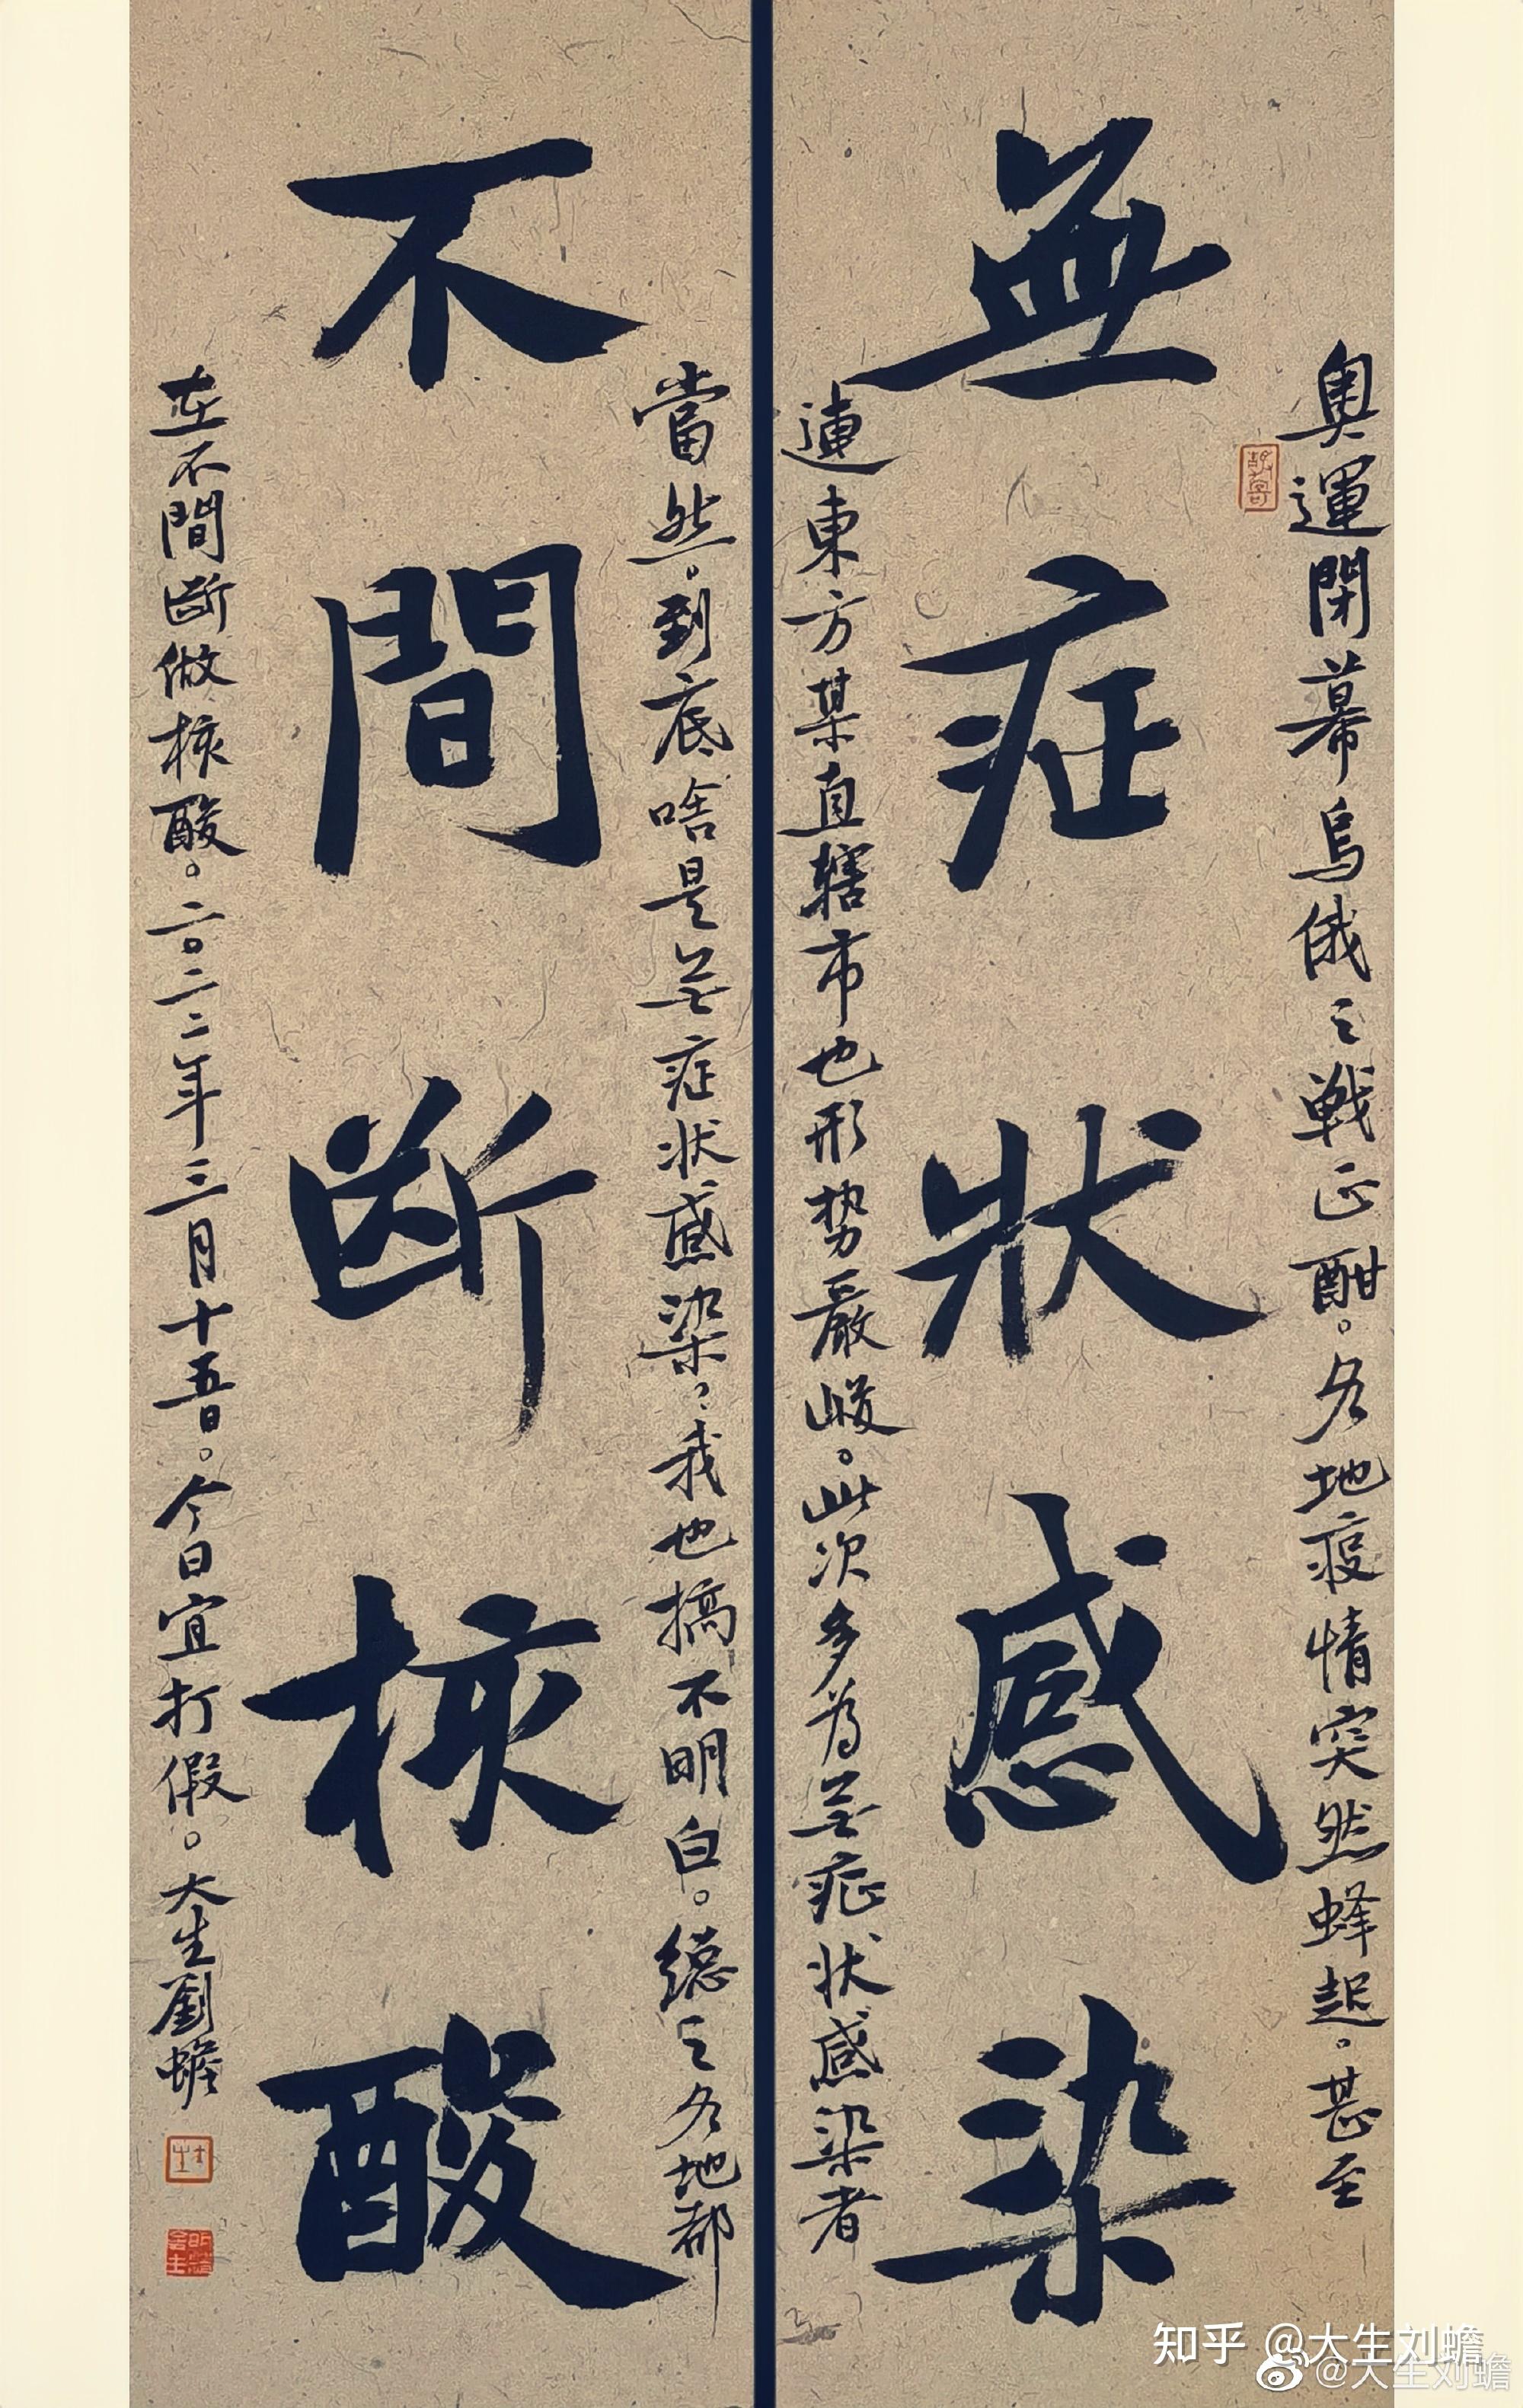 無症狀感染
奧運閉幕烏俄之戰正酣。各地疫情突然蜂起。甚至
連東方某直轄市也形势嚴峻。此次多為无症状感染者
不間断核酸
當然。到底啥是无症状感染,我也搞不明白。總之各地都
在不間断做核酸。二〇二二年三月十五日。今日宜打假。大生劉蟾
知乎 @大生刘蟾
@大生刘蟾